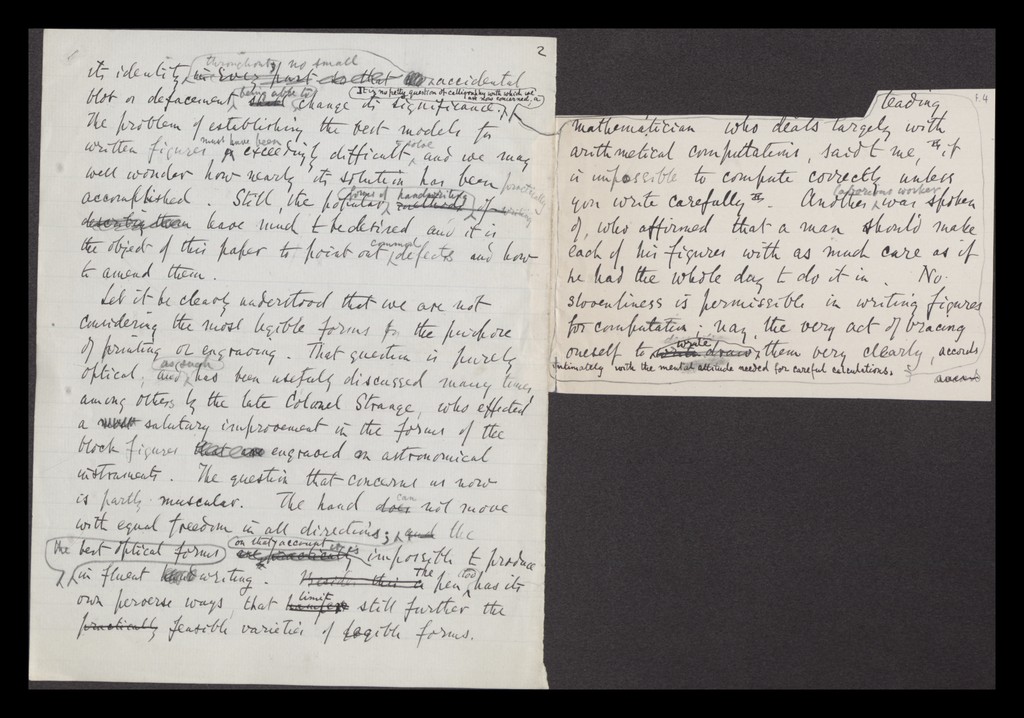 2
throughout, no small
its identity, in every part so that no accidental
blot or defacement, being able to shall change its significance.
It is no petty question of calligraphy with which we are now concerned, a
The problem of establishing the best models for
written figures, must have been exceedingly difficult, and we may
well wonder how nearly its solution has been practically
accomplished. Still, the popular forms of handwriting methods of writing
describing them leave much to be desired and it is
the object of this paper to point out common defects and how
to amend them.
Let it be clearly understood that we are not
considering the most legible forms for the purpose
of printing or engraving. That question is purely
optical, and as such has been usefully discussed many times,
among others by the late Colonel Strange, who effected
a most salutary improvement in the forms of the
block figures that are engraved on astronomical
instruments. The question that concerns us now
is partly muscular. The hand does can not move
with equal freedom in all directions; and the
the best optical forms are practically on that account impossible to produce
in fluent hand writing. Besides this a The pen too has its
own perverse ways, that hamper limit still further the
practically feasible varieties of legible forms.
f.4
leading
mathematician who deals largely with
arithmetical computations, said to me, "it
is impossible to compute correctly unless
you write carefully". Another was spoken
of, who affirmed that a man should make
each of his figures with as much care as if
he had the whole day to do it in. No
slovenliness is permissible in writing figures
for computation; nay, the very act of bracing
oneself to write draw write them very clearly, accords
intimately with the mental attitude needed for careful calculations.
accords